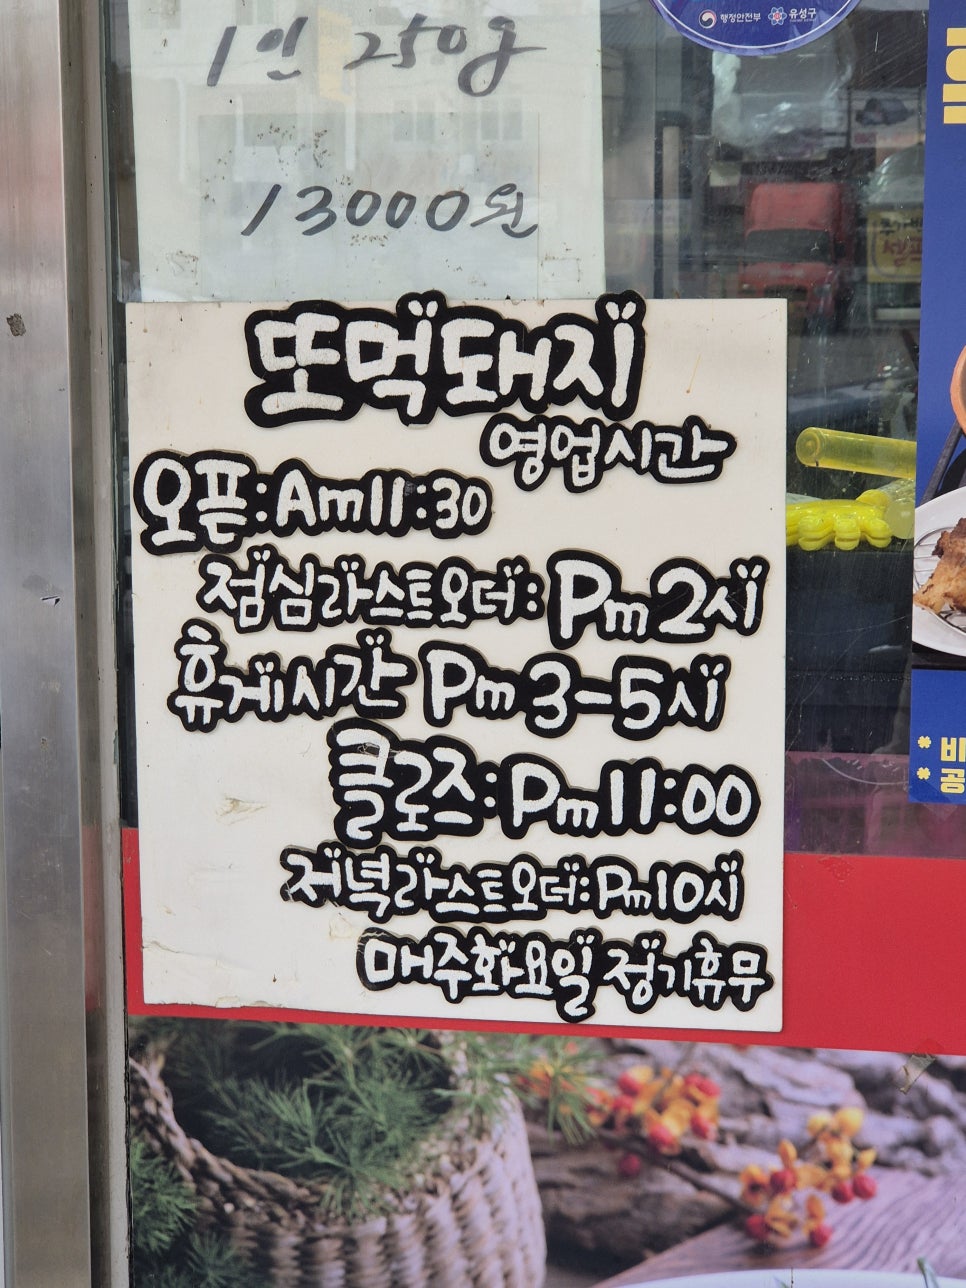 행정안전부 유성구
1인 250g
13000원
또먹돼지
영업시간
오픈:Am11:30
점심라스트오더:Pm2시
휴게시간 Pm3-5시
클로즈:Pm11:00
저녁라스트오더:Pm10시
매주화요일 정기휴무
* 비
* 공